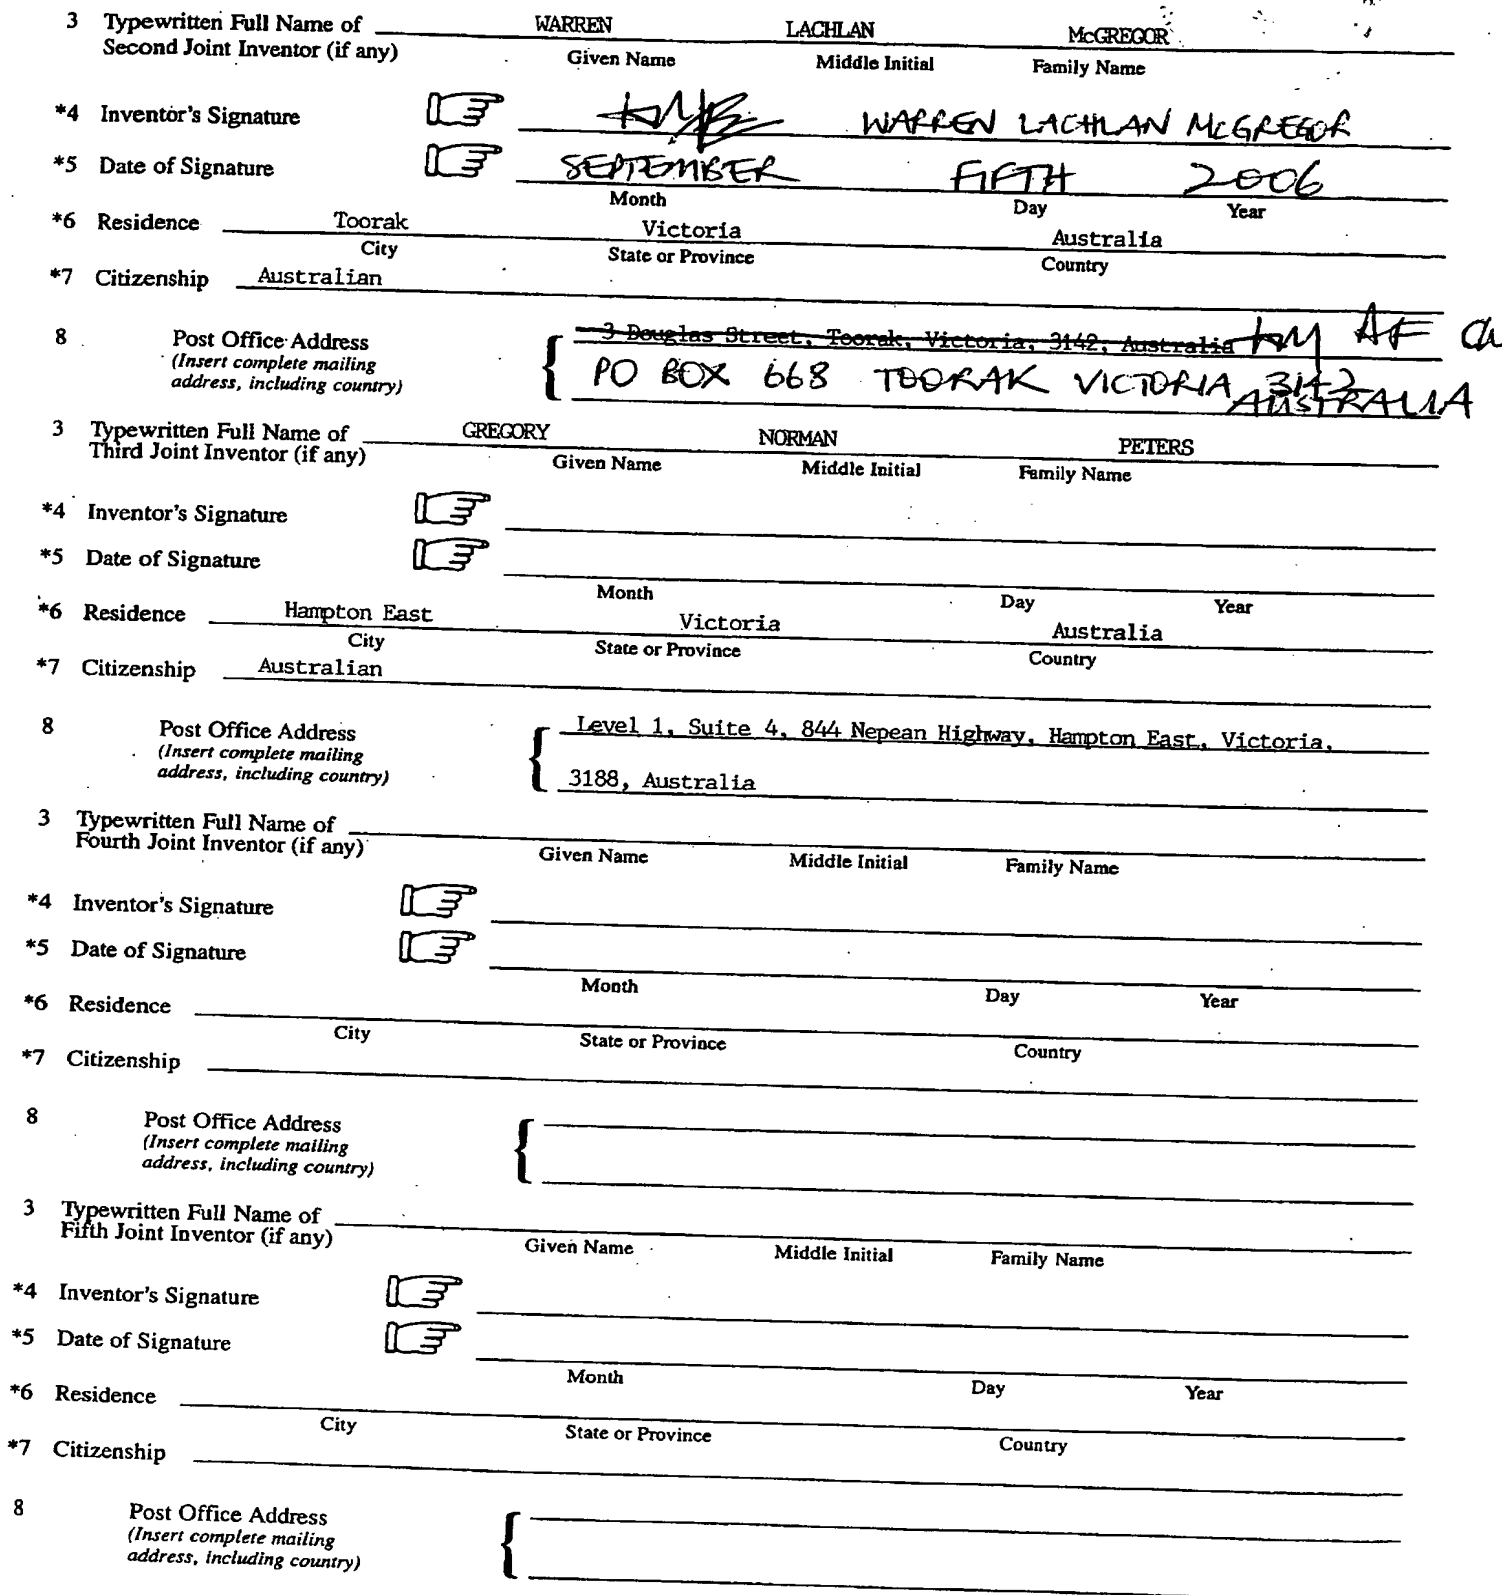 3 Typewritten Full Name of WARREN LACHLAN McGREGOR
Second Joint Inventor (if any) Given Name Middle Initial Family Name
*4 Inventor's Signature WARREN LACHLAN McGREGOR
*5 Date of Signature SEPTEMBER FIFTH 2006
Month Day Year
*6 Residence Toorak Victoria Australia
City State or Province Country
*7 Citizenship Australian
8 Post Office Address 3 Douglas Street, Toorak, Victoria, 3142, Australia
(Insert complete mailing
address, including country) PO BOX 668 TOORAK VICTORIA 3142
AUSTRALIA
3 Typewritten Full Name of GREGORY NORMAN PETERS
Third Joint Inventor (if any) Given Name Middle Initial Family Name
*4 Inventor's Signature
*5 Date of Signature
Month Day Year
*6 Residence Hampton East Victoria Australia
City State or Province Country
*7 Citizenship Australian
8 Post Office Address Level 1, Suite 4, 844 Nepean Highway, Hampton East, Victoria,
(Insert complete mailing
address, including country) 3188, Australia
3 Typewritten Full Name of
Fourth Joint Inventor (if any) Given Name Middle Initial Family Name
*4 Inventor's Signature
*5 Date of Signature
Month Day Year
*6 Residence
City State or Province Country
*7 Citizenship
8 Post Office Address
(Insert complete mailing
address, including country)
3 Typewritten Full Name of
Fifth Joint Inventor (if any) Given Name Middle Initial Family Name
*4 Inventor's Signature
*5 Date of Signature
Month Day Year
*6 Residence
City State or Province Country
*7 Citizenship
8 Post Office Address
(Insert complete mailing
address, including country)